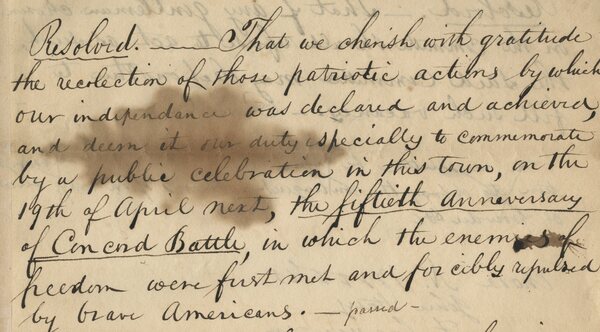 Resolved. — That we cherish with gratitude
the recolection of those patriotic actions by which
our independance was declared and achieved,
and deem it our duty especially to commemorate
by a public celebration in this town, on the
19th of April next, the fiftieth Anniversary
of Concord Battle, in which the enemies of
freedom were first met and forcibly repulsed
by brave Americans. — passed —